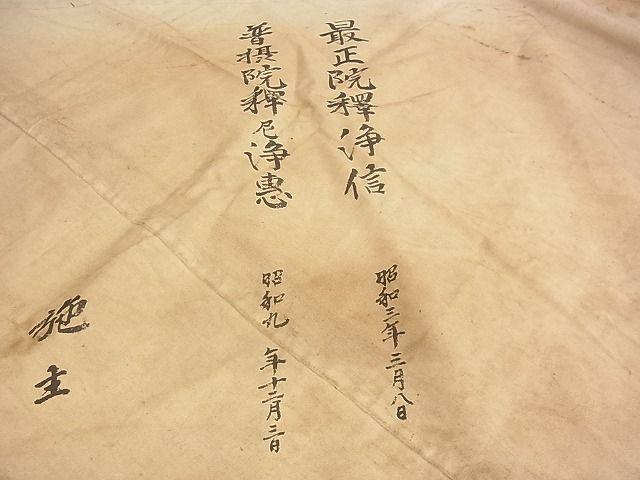 最正院釋浄信
昭和三年三月八日
普摂院釋尼浄惠
昭和九年十二月三日
施主